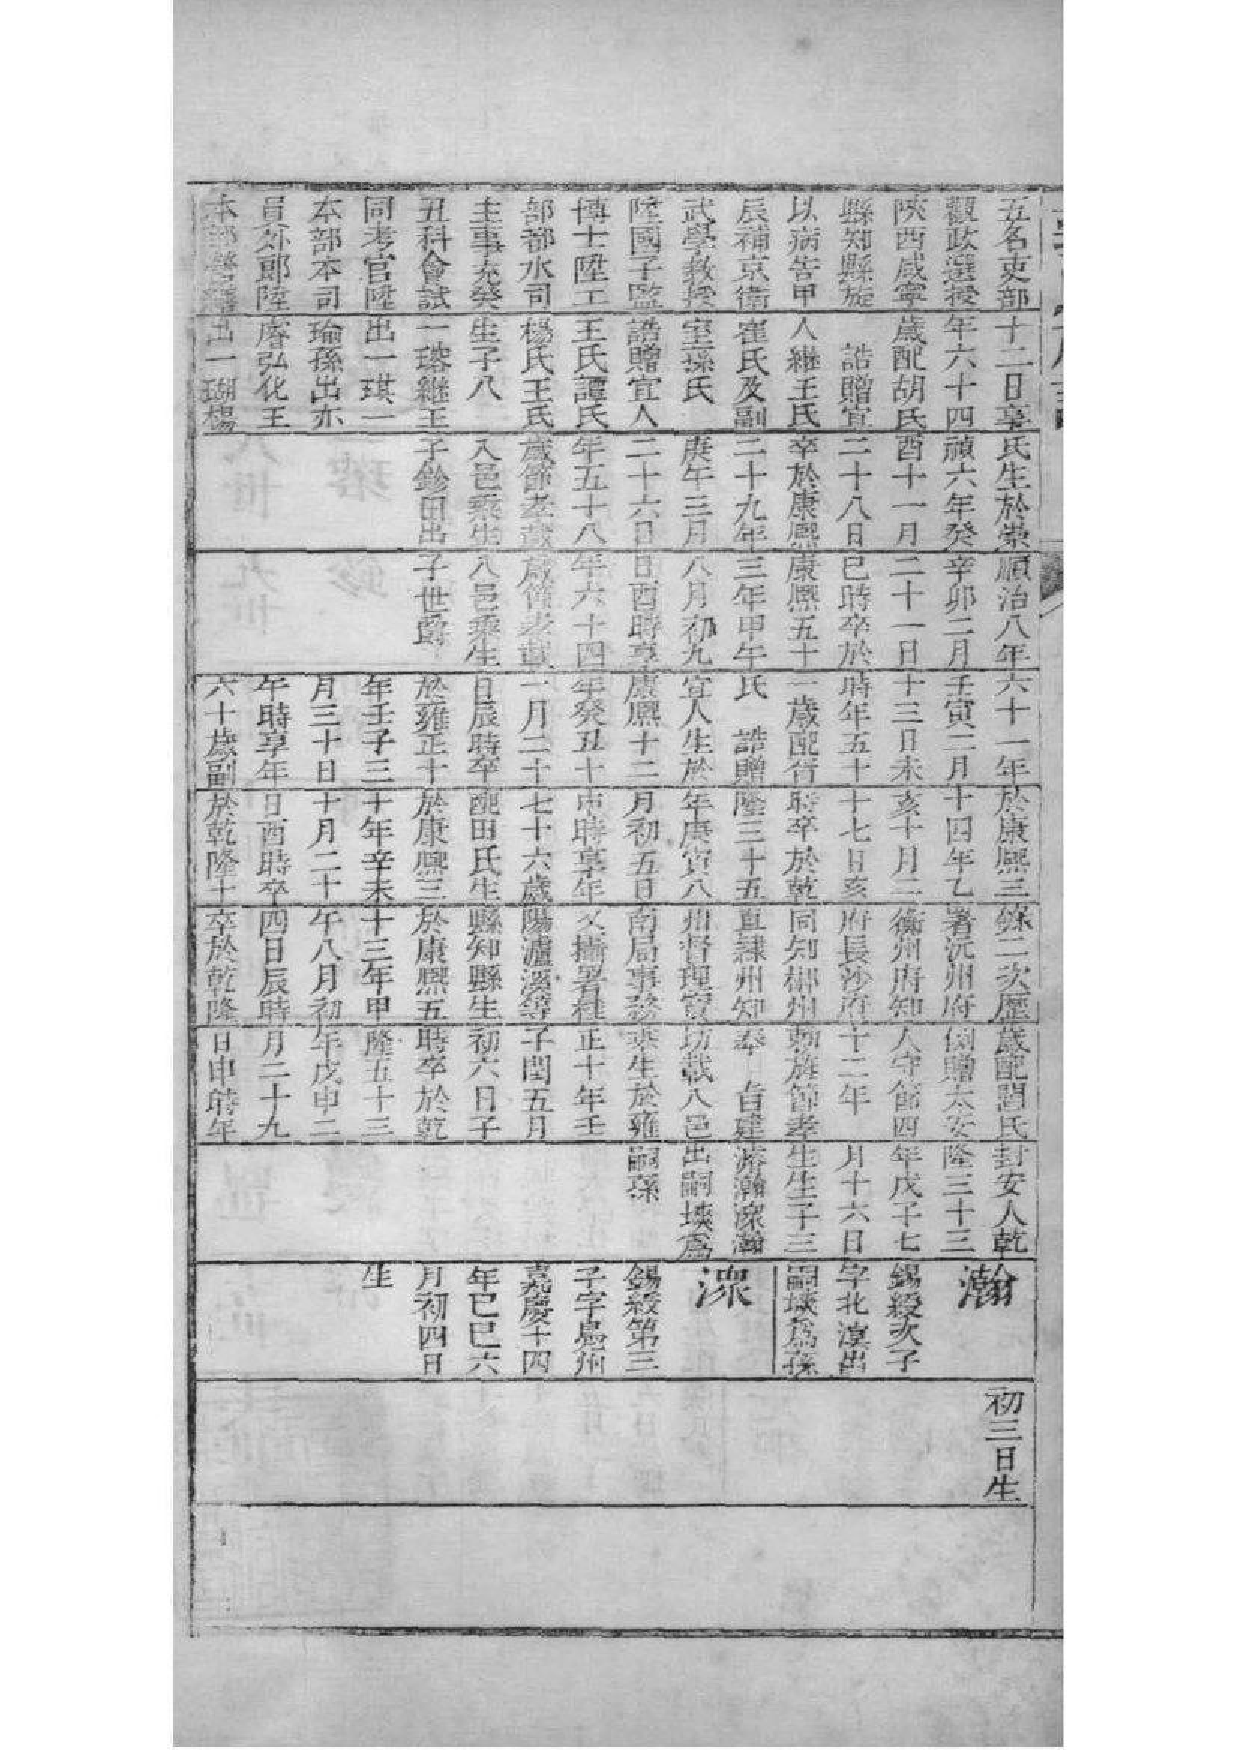 五名吏部
觀政選授
陝西咸寧
縣知縣旋
以病告甲
辰補京衛
武學教授
陞國子監
博士陞工
部都水司
主事充癸
丑科會試
同考官陞
本部本司
員外郎陞
本部營繕
十二日享
年六十四
歲配胡氏
誥贈宜
人繼王氏
崔氏及副
室孫氏
誥贈宜人
王氏譚氏
楊氏王氏
生子八
一瑢繼王
出一琪一
瑜孫出亦
睿弘化王
出一瑚楊
氏生於崇
禎六年癸
酉十一月
二十八日
卒於康熙
二十九年
庚午三月
二十六日
年五十八
歲節孝載
入邑乘生
子鉁田出
順治八年
辛卯二月
二十一日
巳時卒於
康熙五十
三年甲午
八月初九
日酉時享
年六十四
歲節孝載
入邑乘生
子世爵
六十一年
壬寅二月
十三日未
時年五十
一歲配符
氏 誥贈
宜人生於
康熙十二
年癸丑十
一月二十
日辰時卒
於雍正十
年壬子三
月三十日
午時享年
六十歲副
於康熙三
十四年乙
亥十月二
十七日亥
時卒於乾
隆三十五
年庚寅八
月初五日
申時享年
七十六歲
配田氏生
於康熙三
十年辛未
十月二十
日酉時卒
於乾隆十
餘二次歷
署沅州府
衡州府知
府長沙府
同知郴州
直隸州知
州督理寶
南局事務
又攝署桂
陽瀘溪等
縣知縣生
於康熙五
十三年甲
午八月初
四日辰時
卒於乾隆
歲配閻氏
例贈太安
人守節四
十二年
勅旌節孝
奉 旨建
坊載入邑
乘生於雍
正十年壬
子閏五月
初六日子
時卒於乾
隆五十三
年戊申二
月二十九
日申時年
封安人乾
隆三十三
年戊子七
月十六日
生生子三
濤瀚潨瀚
出嗣埮為
嗣孫
瀚
錫綬次子
字北溟出
嗣埮為孫
潨
錫綬第三
子字島州
嘉慶十四
年己巳六
月初四日
生
初三日生